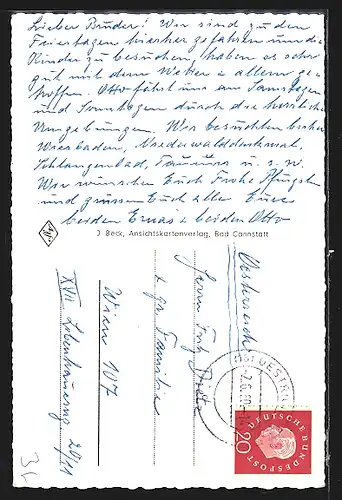 Lieber Bruder! Wir sind zu den
Feiertagen hierher gefahren um die
Kinder zu besuchen, haben es sehr
gut mit dem Wetter u allem ge-
troffen. Otto fährt uns am Samstagen
und Sonntagen durch die herrliche
Umgebungen. Wir besuchten bisher
Wiesbaden, Niederwalddenkmal,
Schlangenbad, Taunus u. s. w.
Wir wünschen Euch Frohe Pfingsten
und grüssen Euch alle Eure
beiden Ernas u beiden Otto
J. Beck, Ansichtskartenverlag, Bad Cannstatt
Oesterreich
Herrn Fritz
u gs. Familie
Wien 107
XVII
20/11
OESTRICH
DEUTSCHE BUNDESPOST
20